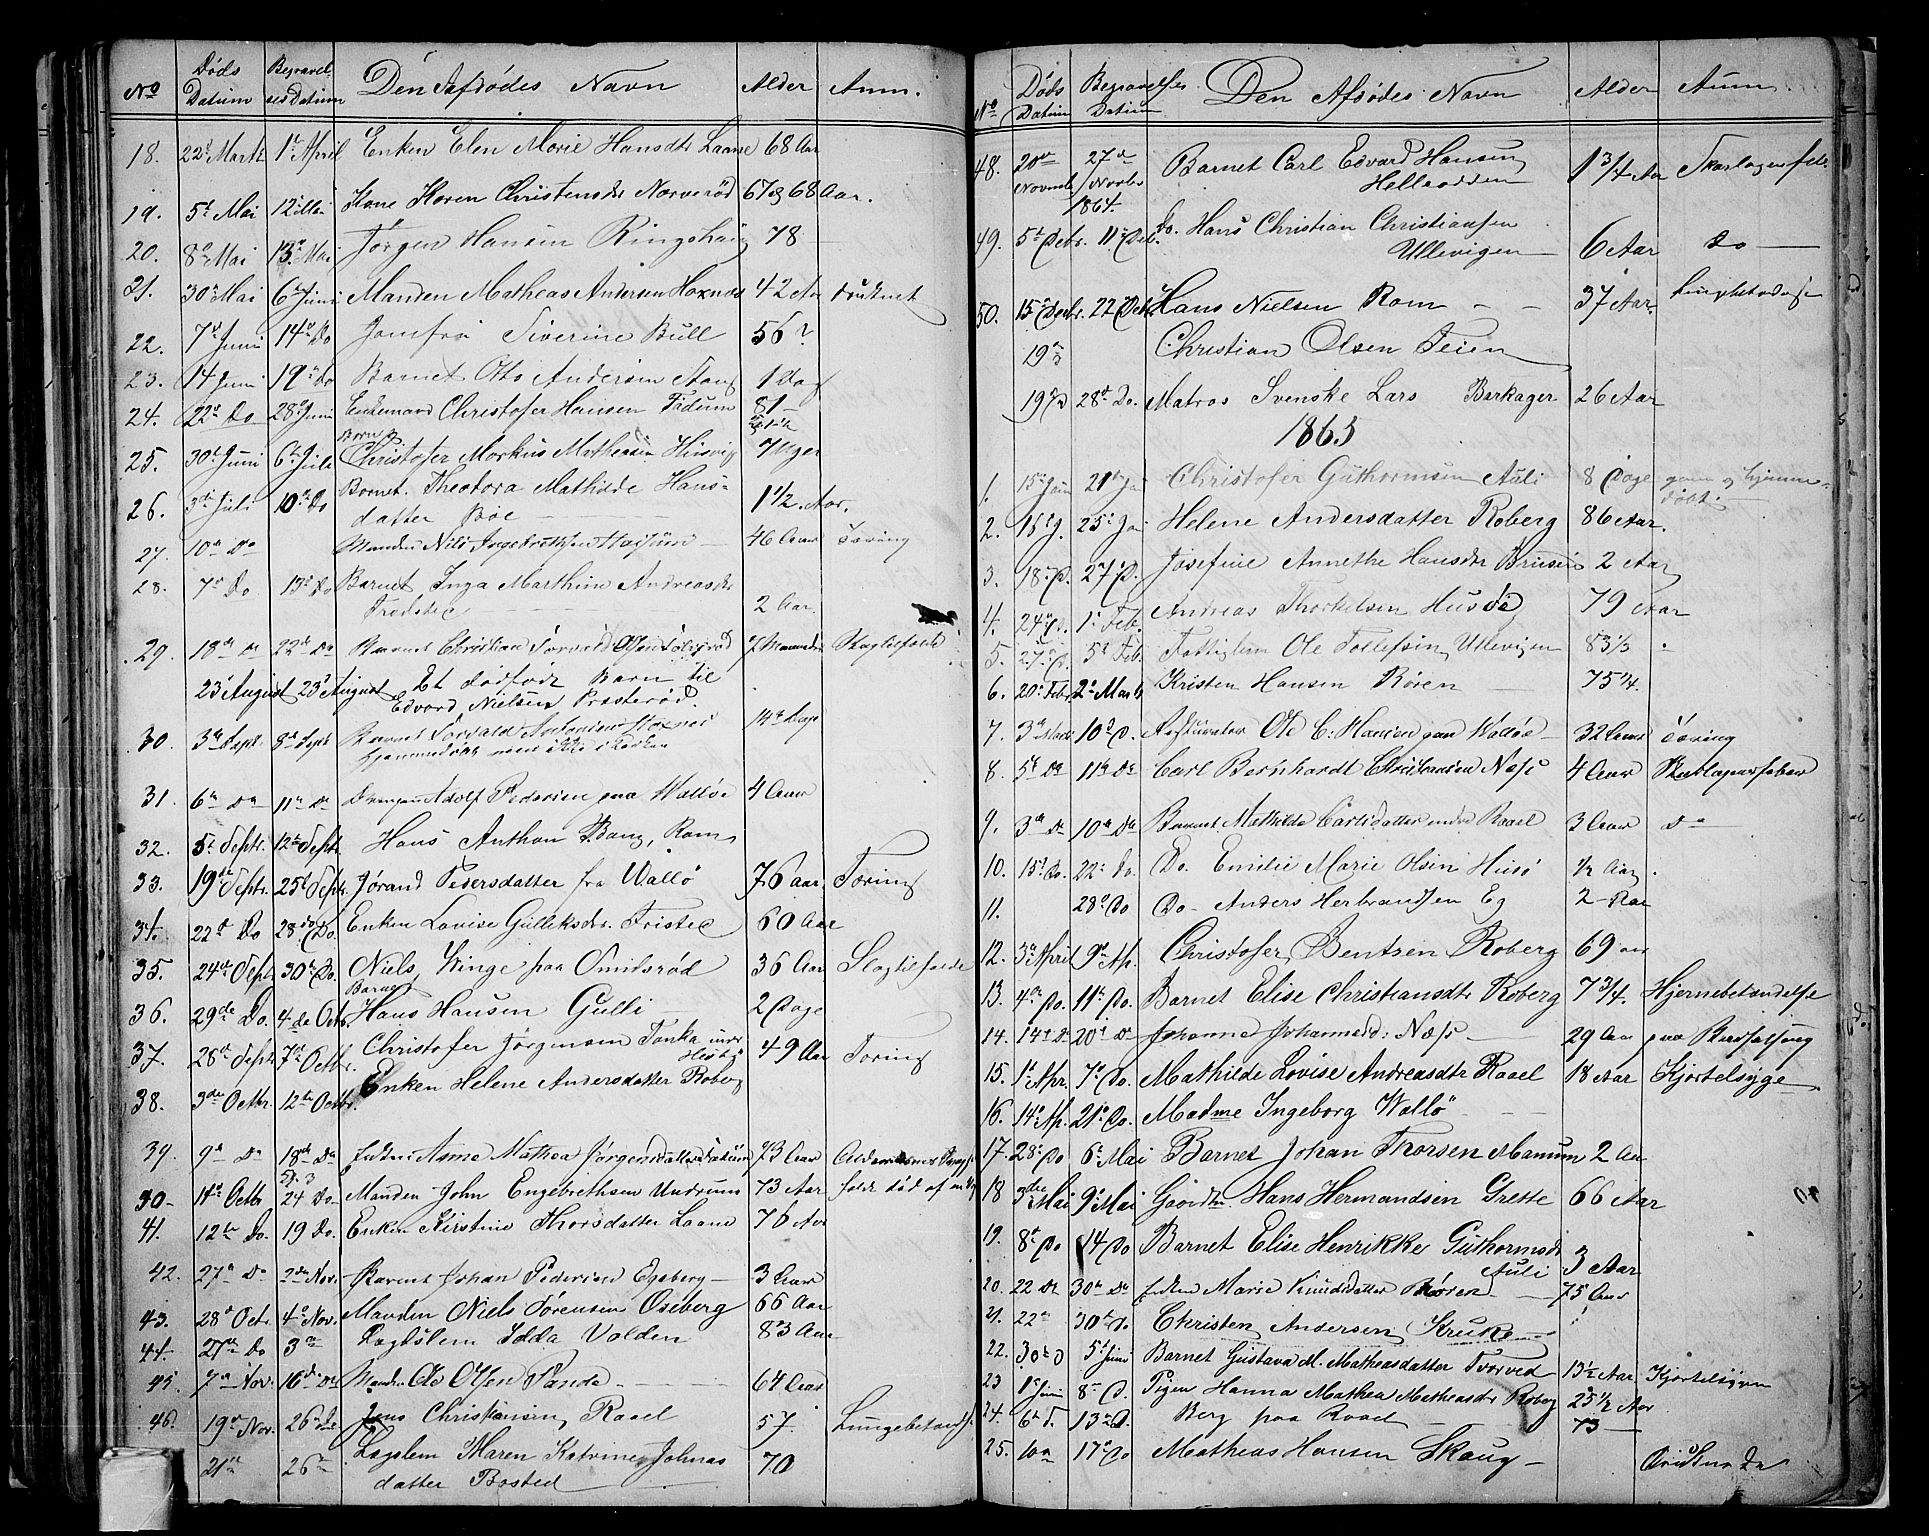 No Døds Datum Begravelses Datum Den Afdødes Navn Alder Anm.
18. 22d Marts 1t April Enken Elen Marie Hansdtr Laane 68 Aar
19. 5t Mai 12t Mai Kone Karen Christensdtr Norverød 67 a 68 Aar.
20. 8d Mai 13d Mai Jørgen Hansen Ringshaug 78 —
21. 30d Mai 6t Juni Manden Matheas Andersen Hoxnæs 42 Aar druknet
22. 7d Juni 14d Do Jomfru Siverine Bull 56?
23. 14 Juni 19d Do Barnet Otto Andersen Stang 1 Dag
24. 22d Do 28d Juni Enkemand Christofer Hansen Tadum 81 —
25. 30d Juni 6t Juli Barnet Christofer Markus Matheasen Husvig 7 Uger
26. 3d Juli 10d Do Barnet. Theodora Mathilde Hans-
datter Bøe — 1 1/2 Aar.
27. 10d Do Manden Nils Ingebretsen — 46 Aar Tæring
28. 7d Do 13d Do Barnet Inga Marthine Andreasdtr
— 2 Aar.
29. 18d Do 22d Do Barnet Christian Torvald Olsen 7 Maaneder
23d August 23d August Et dødfødt Barn til
Edvard Nielsen Præsterød.
30. 3d Sept 8d Sept Barnet Torvald Hoxnæs 14 Dage
Hjemmedøbt men ikke i Kirken
31. 6d Do 11d Do Drengen Adolf Pedersen paa Walløe 4 Aar
32. 5t Septr. 12t Sept Hans Anthon Bang, Rom
33. 19de Septr. 25t Septr Jørand Pedersdatter fra Wallø 76 Aar Tæring
34. 22d Do 28d Do. Enken Lovise Gulliksdr. Tristed 60 Aar
35. 24d Sept 30d Do. Niels Winge paa Smidsrød 36 Aar
36. 29de Do. 4de Octbr Barnet Hans Hansen Gulli — 2 Dage
37. 28d Septr 7d Octbr. Christofer Jørgensen 49 Aar Tæring
38. 3de Octbr. 12te Octbr. Enken Helene Andersdatter Roberg
39. 9d Do 18d Do Enken Anne Mathea Jørgensdatter 73 Aar
40. 11d Octbr 24 Do. Manden John Engebrethsen Undrum 73 Aar
41. 12te Do. 19 Do. Enken Kirstine Thorsdatter Laane 76 Aar
42. 27d Do 2den Nov. Barnet Johan Pedersen Egeberg — 3 Aar
43. 28d Octr. 4d Nov. Manden Niels Sørensen Oseberg 66 Aar
44. 27de Do 3de Idda Volden 83 Aar
45. 7d Nov. 16d Do Manden Ole Olsen — 64 Aar
46. 19d Nov. 26d Do Jens Christiansen Raael 57. Lungebetænd.
21d 26de Lægslem Maren Katrine Johnas
datter Basted — 70
No Døds Datum Begravelses Datum Den Afdødes Navn Alder Anm.
48. 20de Novmb. 27d Novbr 1864. Barnet Carl Edvard Hansen
1 3/4 Aar Skarlagensfeb.
49. 5t Decbr. 11d Dcb. Do. Hans Christian Christiansen
Ullevigen — 6 Aar Do —
50. 15d Decbr. 22 Dcbr Hans Nielsen Rom — — 37 Aar
19d Christian Olsen Teien
19d 28d Do. Matros Svenske Lars Berkager 26 Aar
1865
1. 15d Jan 21d Ja Christofer Guthormsen Auli 8 Dage hjemme-
døbt.
2. 25d Ja Helene Andersdatter Roberg 86 Aar.
3. 18d D. 27 D. Josefine Annethe Hansdtr 2 Aar
4. 24d D. 1d Feb. Andreas Thorkelsen Husø 79 Aar
5. 27d D. 5t Feb. Fattiglem Ole Tollefsen Ullevigen 83 1/3
6. 20d Febr 2d Marts Kristen Hansen Røren — 75 1/4.
7. 3d Marts 10d D. Ole C. Hansen paa Walløe — 32 Aar Tæring
8. 5t Do 11d Do Carl Bernhardt Christiansen Næss 4 Aar Skarlagensfeber
9. 3d Do 10d Do Barnet Mathilde Carlsdatter nedre Raael 3 Aar Do
10. 15d Do. 22d Do. Do. Emilie Marie Olsen Husø 1/2 Aar.
11. 28d Do Do — Anders Herbrandsen Eg 2 Aar
12. 3d April 9d Ap. Christofer Bentsen Roberg 69 aar
13. 4d Do. 11d Do. Barnet Elise Christiansdtr Roberg 7 3/4. Hjernebetændelse
14. 14d D 20d D Johanne Johannesd: Næss — 29 Aar paa Barselseng
15. 1d Apr. 7d Do. Mathilde Lovise Andreasdtr Raael 18 Aar Kjertelsyge —
16. 14d Ap. 21d Do. Madme Ingeborg Wallø — —
17. 28d Do 6d Mai Barnet Johan Thorsen Mamum 2 Aar
18 3die Mai 9d Mai Gaardm. Hans Hermandsen Grette 66 Aar
19. 8d Do 14 Do Barnet Elise Henrikke Guthormsdr
Auli 3 Aar
20. 22 Do 30d Do Enken Marie Knudsdatter Røren — 75 Aar
21. 22de 30d Do Christen Andersen Kruke —
22. 30d D 5t Juni Barnet Gustava M. Matheasdatter Tvorved 13 1/2 Aar Kjertelsygen
23 1d Juni 8d D. Pigen Hanna Mathea Matheasdr Roberg 25 1/2 Aar
24. 6d D. 13d D. Berg paa Raael — 73 —
25. 10d 17d Do Matheas Hansen Skaug — Druknede